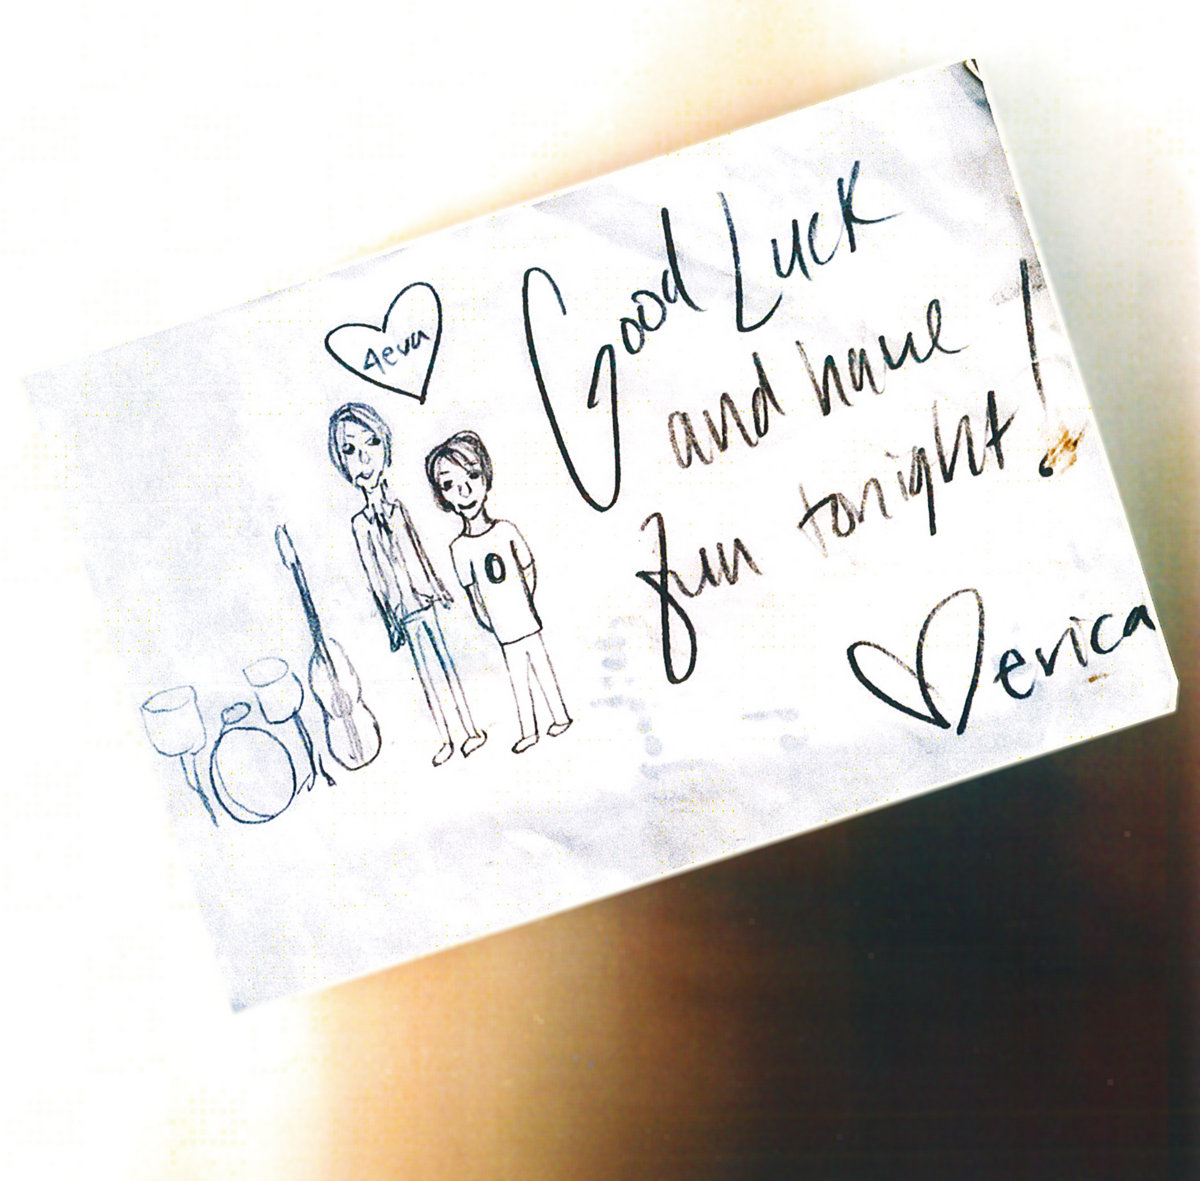 4eva
Good Luck
and have
fun tonight!
♡ erica